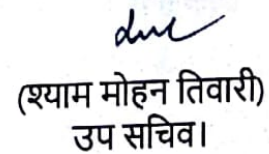 (श्याम मोहन तिवारी)
उप सचिव।